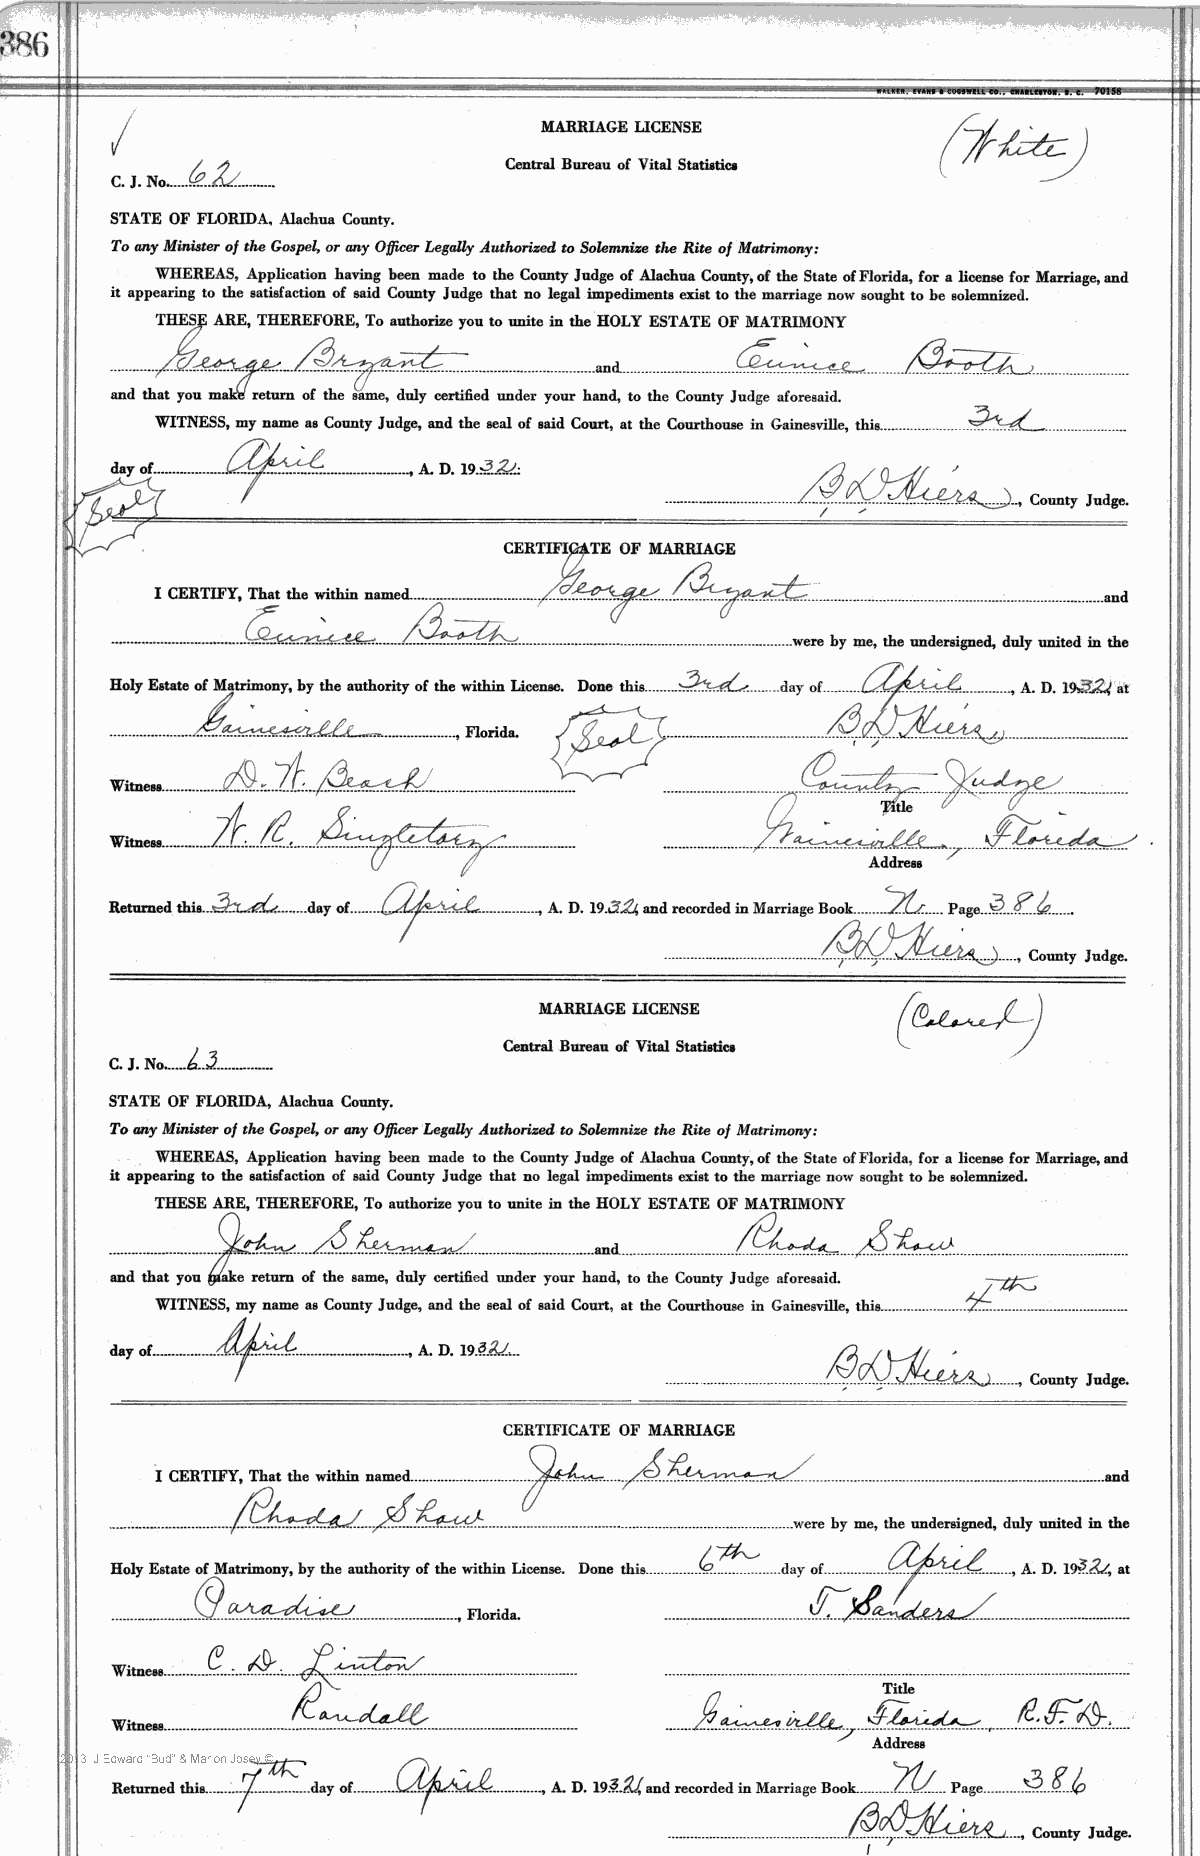 386
WALKER, EVANS & COGSWELL CO., CHARLESTON, S. C. 70158
MARRIAGE LICENSE
(White)
Central Bureau of Vital Statistics
C. J. No. 62
STATE OF FLORIDA, Alachua County.
To any Minister of the Gospel, or any Officer Legally Authorized to Solemnize the Rite of Matrimony:
WHEREAS, Application having been made to the County Judge of Alachua County, of the State of Florida, for a license for Marriage, and
it appearing to the satisfaction of said County Judge that no legal impediments exist to the marriage now sought to be solemnized.
THESE ARE, THEREFORE, To authorize you to unite in the HOLY ESTATE OF MATRIMONY
George Bryant and Eunice Booth
and that you make return of the same, duly certified under your hand, to the County Judge aforesaid.
WITNESS, my name as County Judge, and the seal of said Court, at the Courthouse in Gainesville, this 3rd
day of April, A. D. 1932.
Seal
B. D. Hiers, County Judge.
CERTIFICATE OF MARRIAGE
I CERTIFY, That the within named George Bryant and
Eunice Booth were by me, the undersigned, duly united in the
Holy Estate of Matrimony, by the authority of the within License. Done this 3rd day of April, A. D. 1932, at
Gainesville, Florida. Seal B. D. Hiers
Witness D. W. Beach County Judge
Title
Witness W. R. Singletary Gainesville, Florida
Address
Returned this 3rd day of April, A. D. 1932, and recorded in Marriage Book N Page 386.
B. D. Hiers, County Judge.
MARRIAGE LICENSE
(Colored)
Central Bureau of Vital Statistics
C. J. No. 63
STATE OF FLORIDA, Alachua County.
To any Minister of the Gospel, or any Officer Legally Authorized to Solemnize the Rite of Matrimony:
WHEREAS, Application having been made to the County Judge of Alachua County, of the State of Florida, for a license for Marriage, and
it appearing to the satisfaction of said County Judge that no legal impediments exist to the marriage now sought to be solemnized.
THESE ARE, THEREFORE, To authorize you to unite in the HOLY ESTATE OF MATRIMONY
John Sherman and Rhoda Shaw
and that you make return of the same, duly certified under your hand, to the County Judge aforesaid.
WITNESS, my name as County Judge, and the seal of said Court, at the Courthouse in Gainesville, this 4th
day of April, A. D. 1932.
B. D. Hiers, County Judge.
CERTIFICATE OF MARRIAGE
I CERTIFY, That the within named John Sherman and
Rhoda Shaw were by me, the undersigned, duly united in the
Holy Estate of Matrimony, by the authority of the within License. Done this 6th day of April, A. D. 1932, at
Paradise, Florida. T. Sanders
Witness C. D. Linton
Title
Witness Randall Gainesville, Florida, R.F.D.
Address
2013 J Edward "Bud" & Marion Josey ©
Returned this 7th day of April, A. D. 1932, and recorded in Marriage Book N Page 386
B. D. Hiers, County Judge.